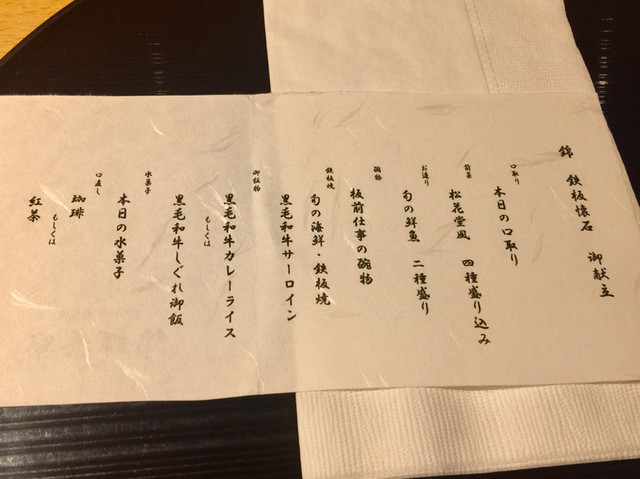 錦 鉄板懐石 御献立
口取り
本日の口取り
前菜
松花堂風 四種盛り込み
お造り
旬の鮮魚 二種盛り
椀物
板前仕事の椀物
鉄板焼
旬の海鮮・鉄板焼
黒毛和牛サーロイン
御飯物
黒毛和牛カレーライス
もしくは
黒毛和牛しぐれ御飯
水菓子
本日の水菓子
口直し
珈琲
もしくは
紅茶